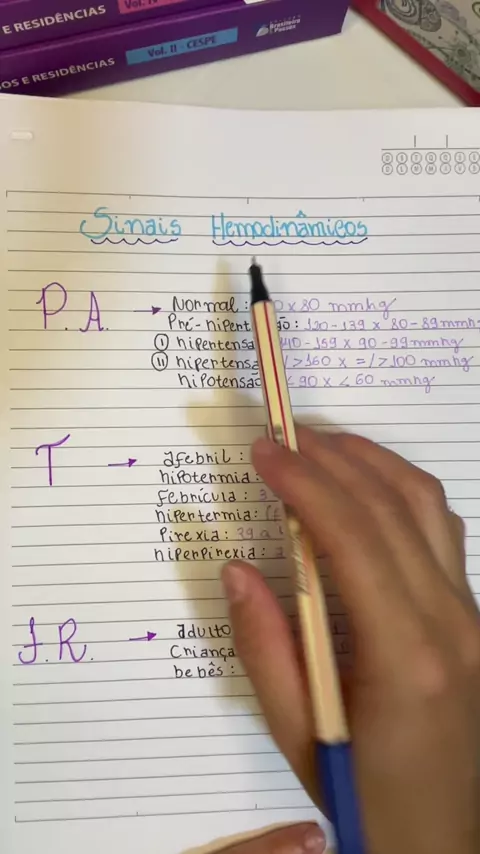 E RESIDÊNCIAS Vol. IV
OS E RESIDÊNCIAS Vol. II - CESPE Brasileira Passos
Sinais Hemodinâmicos
P.A. → Normal: 0 x 80 mmhg
Pré-hipert ão: 120-139 x 80-89 mmh
I hipertensã 40-159 x 90-99 mmhg
II hipertensã />160 x =/>100 mmhg
hipotensão < 90 x < 60 mmhg
T → afebril:
hipotermia:
febrícula: 3
hipertermia: (f
Pirexia: 39 a
hiperpirexia: a
F.R. → adulto
Criança
bebês: